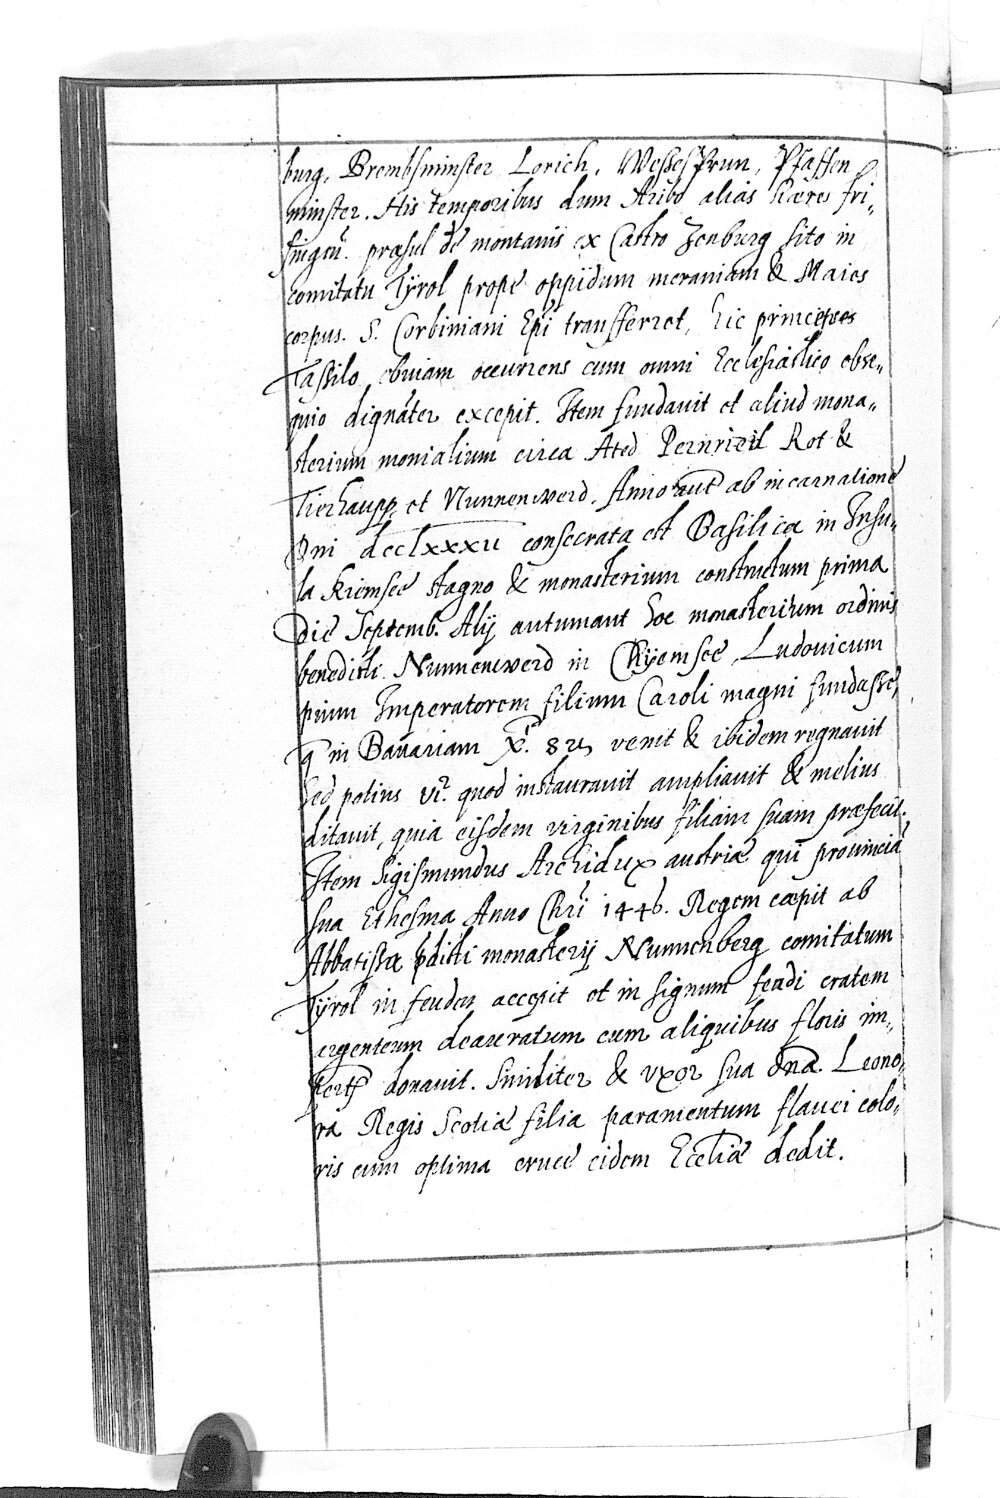 burg, Brembsminster Lorich, WessesPrun, Pfaffen
minster. His temporibus dum Aribo alias Hæres fri-
singeñ. præsul de montanis ex Castro Zenburg sito in
comitatu Tÿrol prope oppidum meraniam & Maies
corpus. S. Corbiniani Epĩ transfferret, hic princeps
Tassilo obviam occurrens cum omni Ecclesiastico obse-
quio dignãter excepit. Item fundauit et aliud mona-
sterium monialium circa Ated Pernrieil Rot &
Tierhaupp et Nunnenwerd. Anno aut̃ ab incarnatione
Dni dcclxxxii consecrata est Basilica in Insu-
la Kiemsee stagno & monasterium constructum prima
die Septemb. Alij autumant hoc monasterium ordinis
benedicti Nunnenwerd in Chÿemsee, Ludouicum
pium Imperatorem filium Caroli magni fundasse,
q̃ in Bauariam venit & ibidem regnauit
sed potius quod instaurauit ampliauit & melius
ditauit, quia eisdem virginibus filiam suam præfecit.
Item Sigismundus Archidux austriæ qui prouincia
sua Anno Chri 1446. Regem cæpit ab
Abbatissa pdicti monasterij Nunnenberg comitatum
Tÿrol in feudum accepit et in signum feudi cratem
argenteum deauratum cum aliquibus floris im-
donauit. Similiter & vxor sua dña. Leono-
ra Regis Scotiæ filia paramentum flauei colo-
ris cum optima cruce eidem Eccliæ dedit.